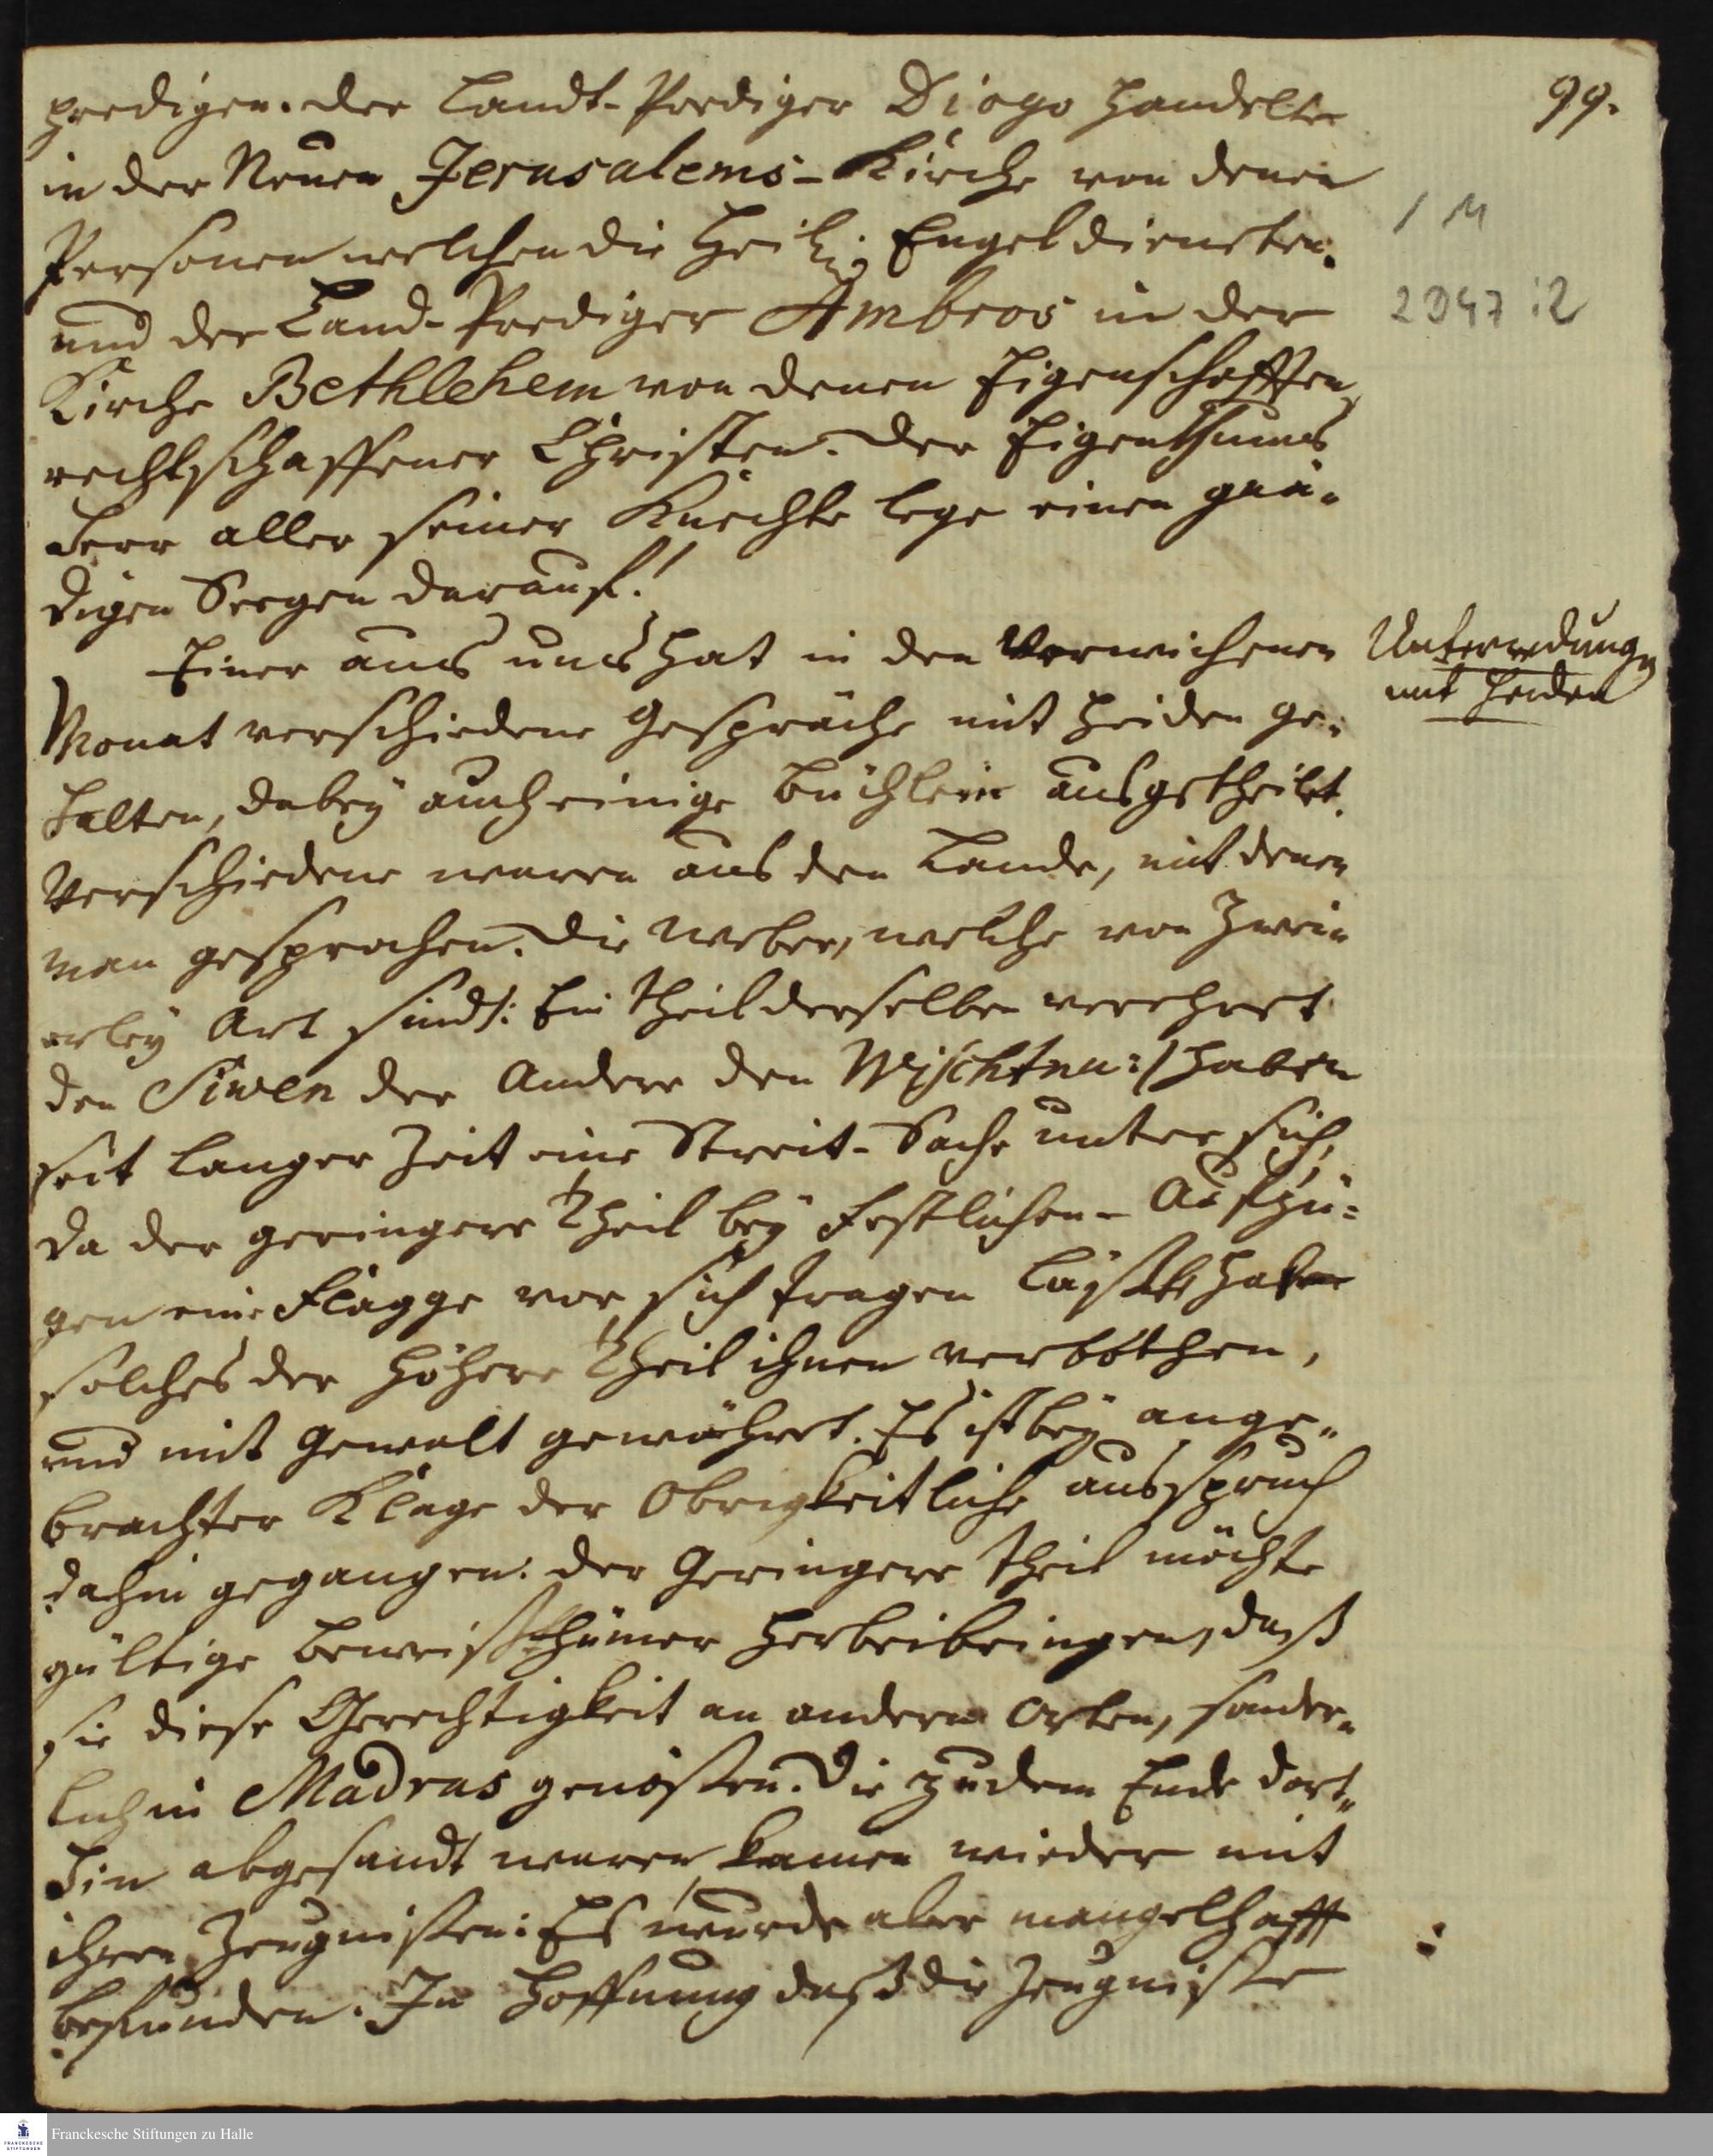 99.
predigen. Der Landt-Prediger Diogo handelte
in der Neuen Jerusalems-Kirche von denen
Personen welchen die Heilig. Engel dieneten.
und der Land-Prediger Ambros in der
Kirche Bethlehem von denen Eigenschafften
rechtschaffener Christen. Der Eigenthums
Herr aller seiner Knechte lege einen gnä-
digen Seegen darauf!
Einer aus uns hat in den Verwichenen
Monat verschiedene Gespräche mit Heiden ge-
halten, dabey auch einige Büchlein ausgetheilt.
Verschiedene waren aus den Lande, mit denen
man gesprochen. Die Weber, welche von Zwei-
erley Art sind/: Ein theil derselben verehret
den Siwen der Andere den Wischtnu:/ haben
seit langer Zeit eine Streit-Sache unter sich,
da der geringere Theil bey Festlichen-Aufzü-
gen eine Flagge vor sich tragen läst, hat
solches der Höhere Theil ihnen verbothen,
und mit Gewalt gewähret. Es ist bey ange-
brachter Klage der Obrigkeitliche ausspruch
dahin gegangen: der Geringere theil möchte
gültige Beweißthümer herbeibringen, daß
sie diese Gerechtigkeit an andern Orten, sonder-
lich in Madras genößen. Die zu dem Ende dort-
hin abgesandt waren, kamen wieder mit
ihren Zeugnißen: Es wurde aber mangelhafft
befunden. In Hoffnung daß die Zeugniße
1 M
2 D47 :2
Unterredung
mit Heiden
Franckesche Stiftungen zu Halle